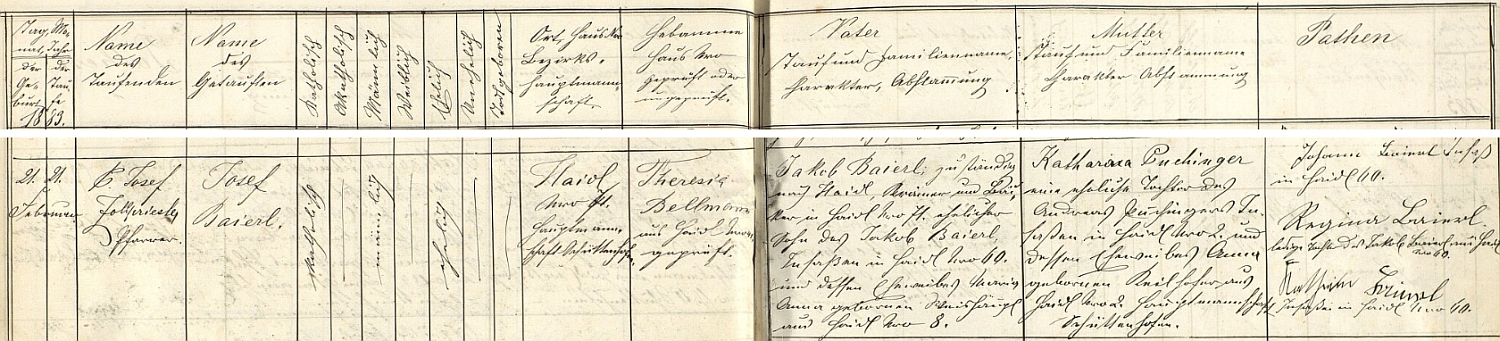 Tag, Mo-
nat, Jahr
der der
Ge- Tau-
burt fe
1883.
Name
des
Taufenden
Name
des
Getauften
Katholisch
Akatholisch
Männlich
Weiblich
Ehelich
Unehelich
Todtgeboren
Ort, Haus Nro
Bezirks-
hauptmann-
schaft.
Hebamme
Haus Nro
geprüft oder
ungeprüft.
Vater
Tauf und Familienname,
Charakter, Abstammung
Mutter
Tauf und Familienname
Charakter Abstammung
Pathen
21. 21.
Februar
P. Josef
Pfarrer.
Josef
Baierl.
katholisch
männlich
ehelich
Haidl
Nro 71.
Hauptmann-
schaft Schüttenhofen.
Theresia
Bellmann
aus Haidl
geprüft.
Jakob Baierl, zuständig
nach Haidl, Krämer und Bäk-
ker in Haidl Nro 71. ehelicher
Sohn des Jakob Baierl,
Insaßen in Haidl Nro 60.
und dessen Eheweibes Maria
Anna gebornen Weishäupl
aus Haidl Nro 8.
Katharina Puchinger
eine eheliche Tochter des
Andreas Puchingers In-
saßen in Haidl Nro 2. und
dessen Eheweibes Anna
gebornen Keilhofer aus
Haidl Nro 2. Hauptmannschaft
Schüttenhofen.
Johann Baierl Insaß
in Haidl 60.
Regina Baierl
ledige Tochter des Jakob Baierl aus Haidl
Nro 60.
Baierl
in Haidl Nro 60.